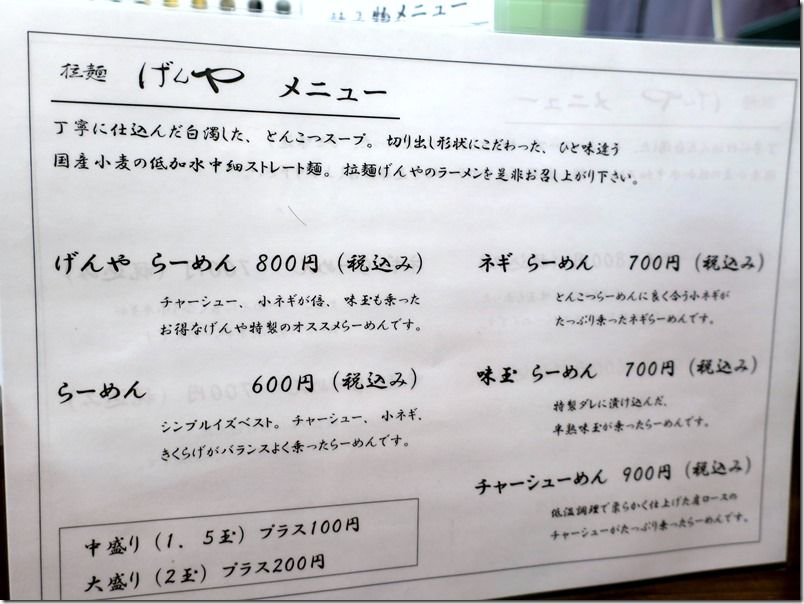 メニュー
拉麺 げんや メニュー
丁寧に仕込んだ白濁した、とんこつスープ。切り出し形状にこだわった、ひと味違う
国産小麦の低加水中細ストレート麺。拉麺げんやのラーメンを是非お召し上がり下さい。
げんや らーめん 800円（税込み）
チャーシュー、小ネギが倍、味玉も乗った
お得なげんや特製のオススメらーめんです。
らーめん 600円（税込み）
シンプルイズベスト。チャーシュー、小ネギ、
きくらげがバランスよく乗ったらーめんです。
中盛り（1．5玉）プラス100円
大盛り（2玉）プラス200円
ネギ らーめん 700円（税込み）
とんこつらーめんに良く合う小ネギが
たっぷり乗ったネギらーめんです。
味玉 らーめん 700円（税込み）
特製ダレに漬け込んだ、
半熟味玉が乗ったらーめんです。
チャーシューめん 900円（税込み）
低温調理で柔らかく仕上げた肩ロースの
チャーシューがたっぷり乗ったらーめんです。